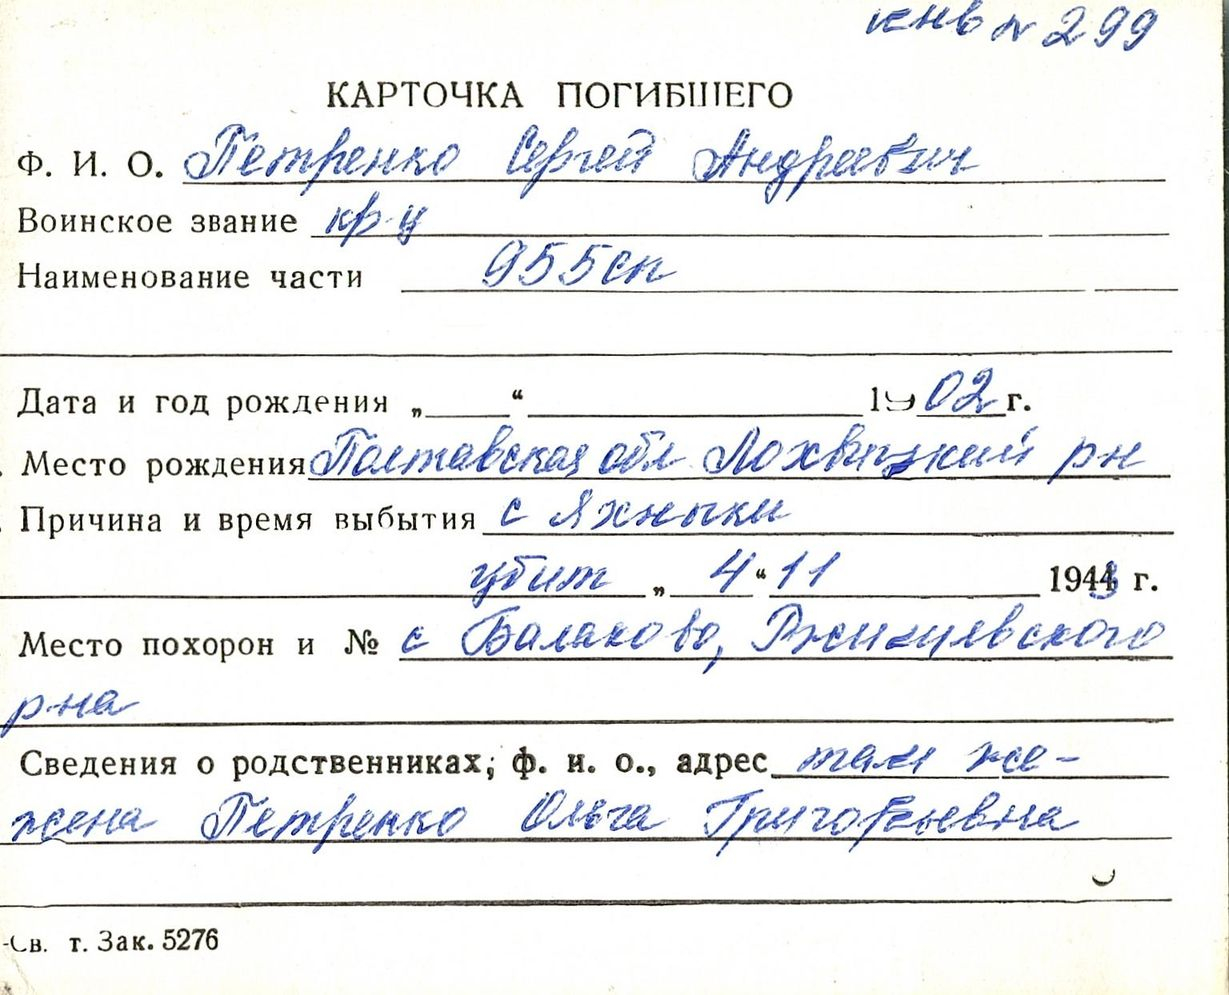 инв № 299
КАРТОЧКА ПОГИБШЕГО
Ф. И. О. Петренко Сергей Андреевич
Воинское звание кр-ц
Наименование части 955сп
Дата и год рождения „ “ 1902 г.
Место рождения Полтавская обл Лохвицкий рн
Причина и время выбытия с Яхныки
убит „ 4 “ 11 1943 г.
Место похорон и № с Балахово, Ржищевского
р-на
Сведения о родственниках, ф. и. о., адрес там же -
жена Петренко Ольга Григорьевна
-Св. т. Зак. 5276